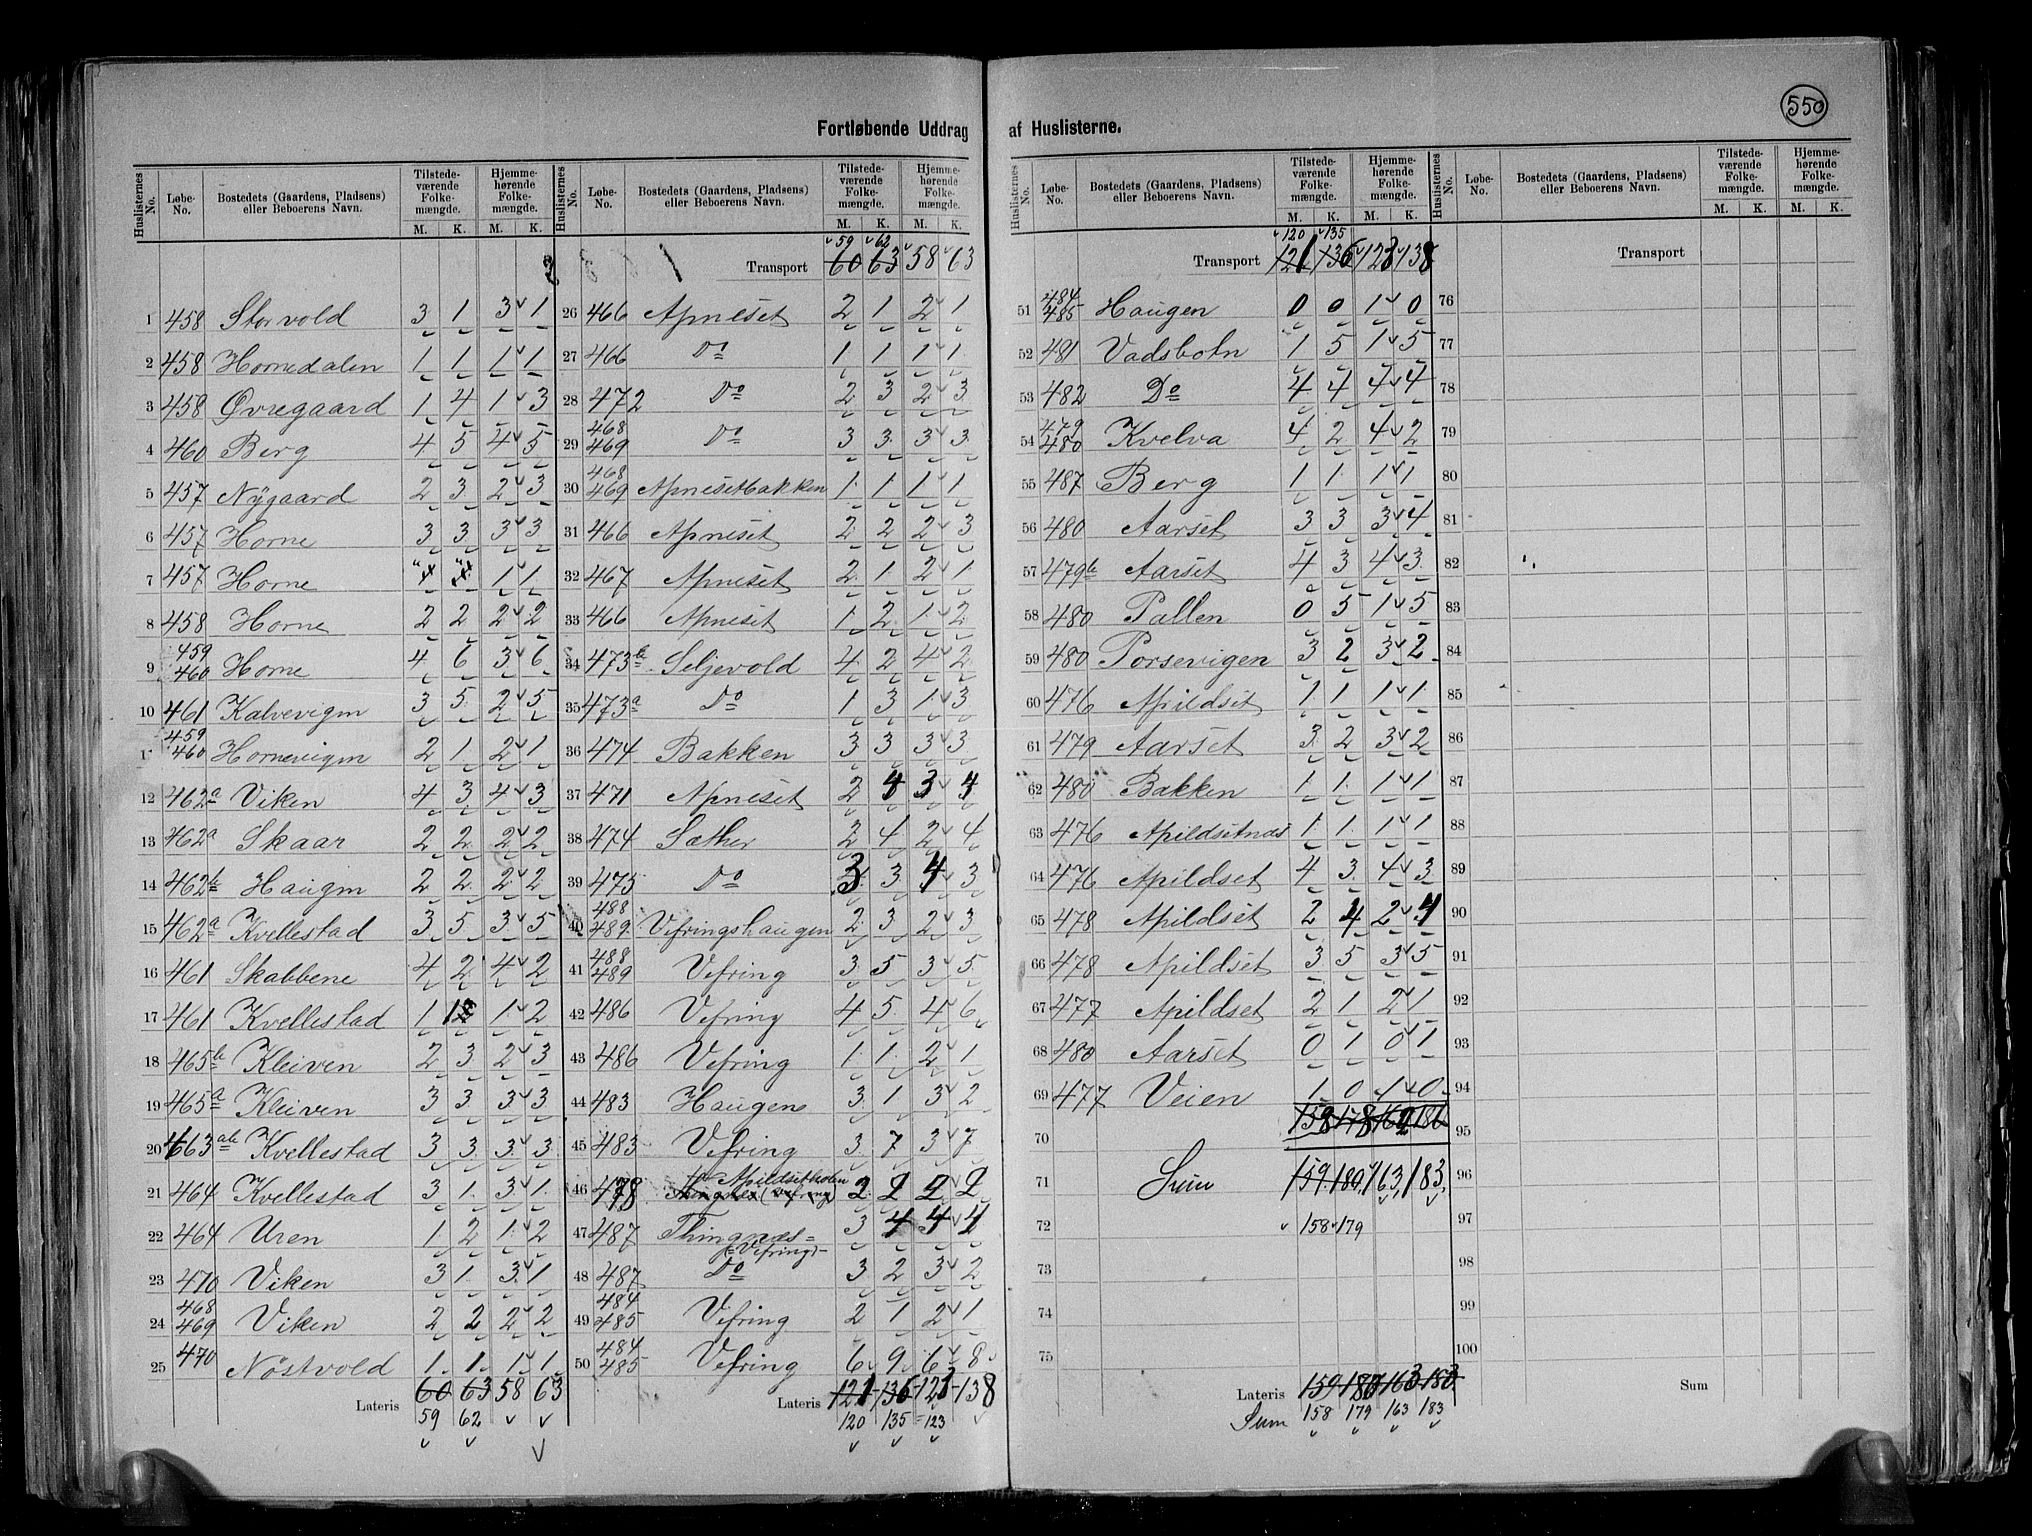 550
Fortløbende Uddrag af Huslisterne.
Huslisternes No. Løbe-No. Bostedets (Gaardens, Pladsens) eller Beboerens Navn. Tilstedeværende Folkemængde. M. K. Hjemmehørende Folkemængde. M. K.
1 458 Storvold 3 1 3 1
2 458 Hornedalen 1 1 1 1
3 458 Øvregaard 1 4 1 3
4 460 Berg 4 5 4 5
5 457 Nygaard 2 3 2 3
6 457 Horne 3 3 3 3
7 457 Horne 1 1
8 458 Horne 2 2 2 2
9 459 460 Horne 4 6 3 6
10 461 Kalvevigen 3 5 2 5
1 459 460 Hornevigen 2 1 2 1
12 462a Viken 4 3 4 3
13 462a Skaar 2 2 2 2
14 462b Haugen 2 2 2 2
15 462a Kvellestad 3 5 3 5
16 461 Skabbene 4 2 4 2
17 461 Kvellestad 1 1 1 2
18 465b Kleiven 2 3 2 3
19 465a Kleiven 3 3 3 3
20 463ab Kvellestad 3 3 3 3
21 464 Kvellestad 3 1 3 1
22 464 Uren 1 2 1 2
23 470 Viken 3 1 3 1
24 468 469 Viken 2 2 2 2
25 470 Nøstvold 1 1 1 1
Lateris 60 63 58 63
59 62
Huslisternes No. Løbe-No. Bostedets (Gaardens, Pladsens) eller Beboerens Navn. Tilstedeværende Folkemængde. M. K. Hjemmehørende Folkemængde. M. K.
59 62
Transport 60 63 58 63
26 466 Apneset 2 1 2 1
27 466 Do 1 1 1 1
28 472 Do 2 3 2 3
29 468 469 Do 3 3 3 3
30 468 469 Apnesetbakken 1 1 1 1
31 466 Apneset 2 2 2 3
32 467 Apneset 2 1 2 1
33 466 Apneset 1 2 1 2
34 473b Seljevold 4 2 4 2
35 473a Do 1 3 1 3
36 474 Bakken 3 3 3 3
37 471 Apneset 2 4 3 4
38 474 Sæther 2 4 2 4
39 475 Do 3 3 4 3
40 488 489 Vefringshaugen 2 3 2 3
41 488 489 Vefring 3 5 3 5
42 486 Vefring 4 5 4 6
43 486 Vefring 1 1 2 1
44 483 Haugen 3 1 3 2
45 483 Vefring 3 7 3 7
46 478 Apildsetholen 2 2 2 2
47 487 Thingnæs= 3 4 4 4
(=Vefring)-
48 487 Do 3 2 3 2
49 484 485 Vefring 2 1 2 1
50 484 485 Vefring 6 9 6 8
Lateris 121 136 123 138
120 135 =123
Huslisternes No. Løbe-No. Bostedets (Gaardens, Pladsens) eller Beboerens Navn. Tilstedeværende Folkemængde. M. K. Hjemmehørende Folkemængde. M. K.
120 135
Transport 121 136 123 138
51 484 485 Haugen 0 0 1 0
52 481 Vadsbotn 1 5 1 5
53 482 Do 4 4 4 4
54 479 480 Kvelva 4 2 4 2
55 487 Berg 1 1 1 1
56 480 Aarset 3 3 3 4
57 479b Aarset 4 3 4 3
58 480 Pallen 0 5 1 5
59 480 Porsevigen 3 2 3 2
60 476 Apildset 1 1 1 1
61 479 Aarset 3 2 3 2
62 480 Bakken 1 1 1 1
63 476 Apildsetnæs 1 1 1 1
64 476 Apildset 4 3 4 3
65 478 Apildset 2 4 2 4
66 478 Apildset 3 5 3 5
67 477 Apildset 2 1 2 1
68 480 Aarset 0 1 0 1
69 477 Veien 1 0 1 0
70 158 178 162 186
71 Sum 159 180 163 183
72 158 179
73
74
75
Lateris 159 180 163 183
Sum 158 179 163 183
Huslisternes No. Løbe-No. Bostedets (Gaardens, Pladsens) eller Beboerens Navn. Tilstedeværende Folkemængde. M. K. Hjemmehørende Folkemængde. M. K.
Transport
76
77
78
79
80
81
82
83
84
85
86
87
88
89
90
91
92
93
94
95
96
97
98
99
100
Sum